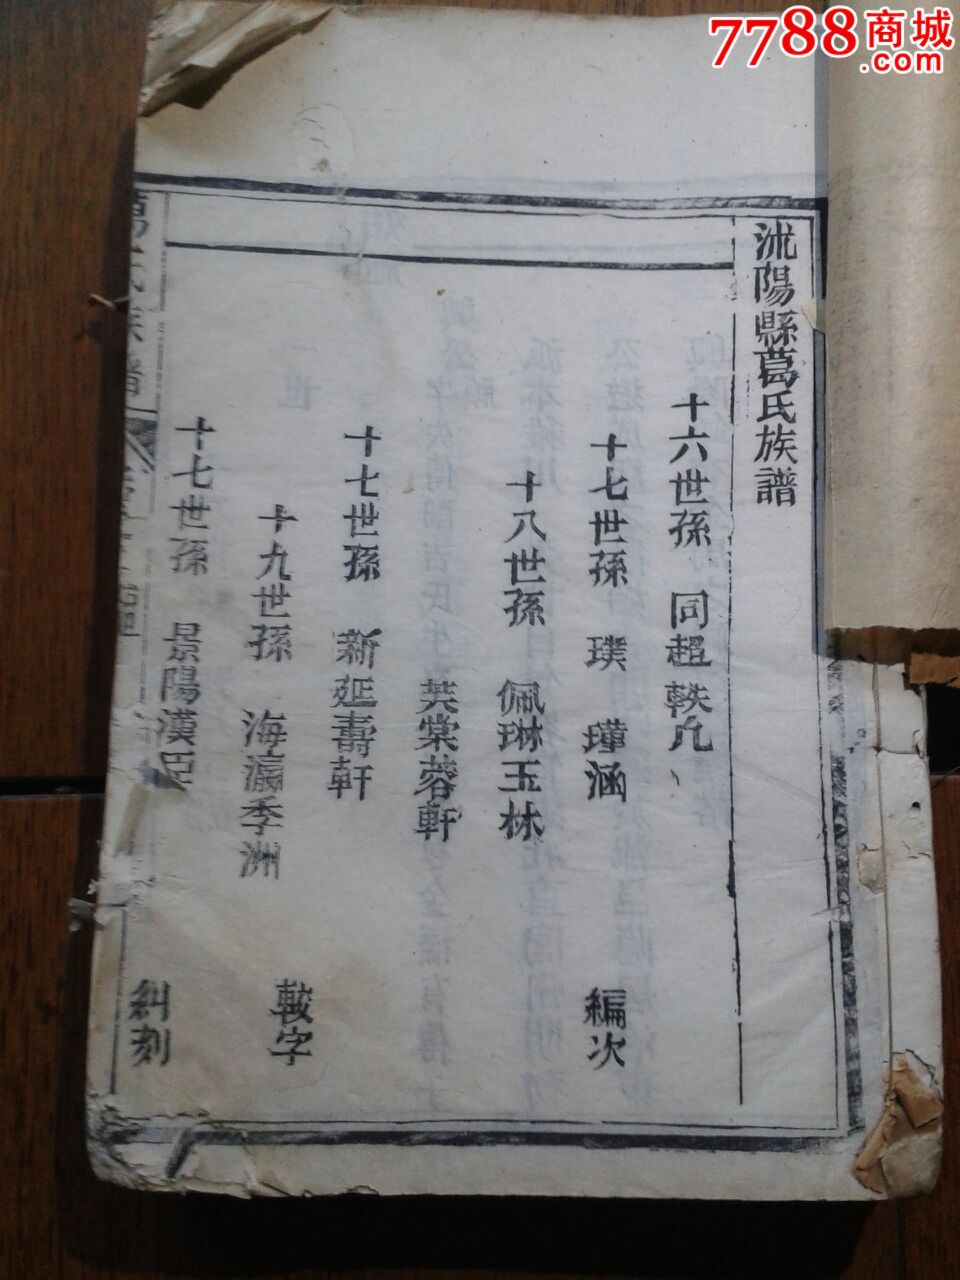 7788商城
.com
沭陽縣葛氏族譜
十六世孫 同超 軼凡
十七世孫 璞 瑾涵
編次
十八世孫 佩琳玉林
芙棠蓉軒
十七世孫 新延壽軒
十九世孫 海瀛季洲
十七世孫 景陽漢臣
糾刻
葛氏族譜